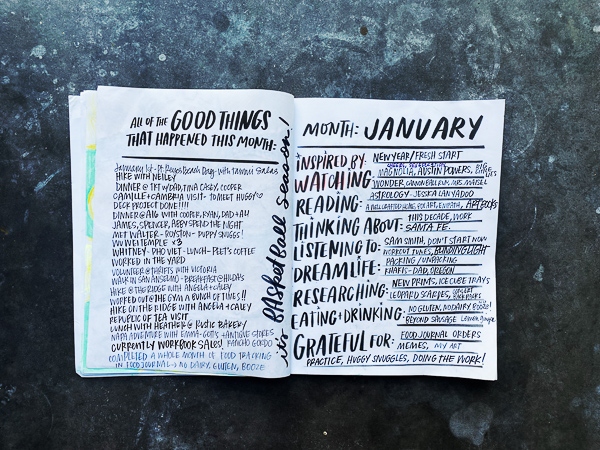 ALL OF THE GOOD THINGS
THAT HAPPENED THIS MONTH:
January 1st - Pt. Reyes Beach Day - with
HIKE WITH NEILEY
DINNER @ TKT W/DAD, TINA, CASEY, COOPER
CAMILLE + CAMBRIA VISIT - TO MEET HUGGY
DECK PROJECT DONE!!!!
DINNER @ AIG WITH COOPER, RYAN, DAD + ALI
JAMES, SPENCER, ABBY SPEND THE NIGHT
MET WALTER - ROYSTON - PUPPY SNUGGS!
WU WEI TEMPLE x3
WHITNEY - PHO VIET - LUNCH - PEET'S COFFEE
WORKED IN THE YARD
VOLUNTEER @ THRIFTS WITH VICTORIA
WALK IN SAN ANSELMO - BREAKFAST @ HILDA'S
HIKE @ THE RIDGE WITH ANGELA + CALEY
WORKED OUT @ THE GYM A BUNCH OF TIMES!!
HIKE ON THE RIDGE WITH ANGELA + CALEY
REPUBLIC OF TEA VISIT
LUNCH WITH HEATHER @ RUSTIC BAKERY
NAPA ADVENTURE WITH EMMA - GOTT'S + ANTIQUE STORES
CURRENTLY WORKBOOK SALES! RANCHO GORDO
COMPLETED A WHOLE MONTH OF FOOD TRACKING
IN FOOD JOURNAL -> NO DAIRY, GLUTEN, BOOZE
it's BASKETBALL SEASON!
MONTH: JANUARY
INSPIRED BY: NEW YEAR / FRESH START
WATCHING: MAGNOLIA, AUSTIN POWERS, BIG LITTLE LIES
WONDER MRS. MAISEL
READING: ASTROLOGY - JESSICA LANYADOO
ART BOOKS
THINKING ABOUT: THIS DECADE, WORK
SANTA FE
LISTENING TO: SAM SMITH, DON'T START NOW
WORKOUT TUNES, BLINDING LIGHT
DREAMLIFE: PACKING / UNPACKING
KHAKIS - DAD, OREGON
RESEARCHING: NEW PRINTS, ICE CUBE TRAYS
LEOPARD SCARVES,
EATING + DRINKING: NO GLUTEN, NO DAIRY, BOOZE!
BEYOND SAUSAGE
GRATEFUL FOR: FOOD JOURNAL ORDERS
MEMES, MY ART
PRACTICE, HUGGY SNUGGLES, DOING THE WORK!